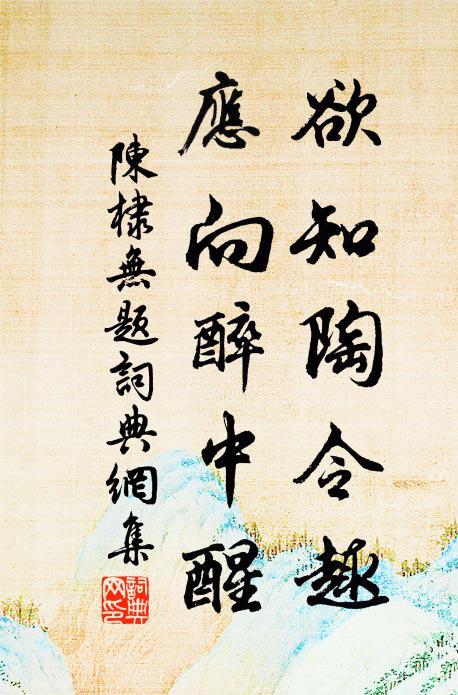 欲知陶令趣
應向醉中醒
陳棣無題詞典網集
詞典